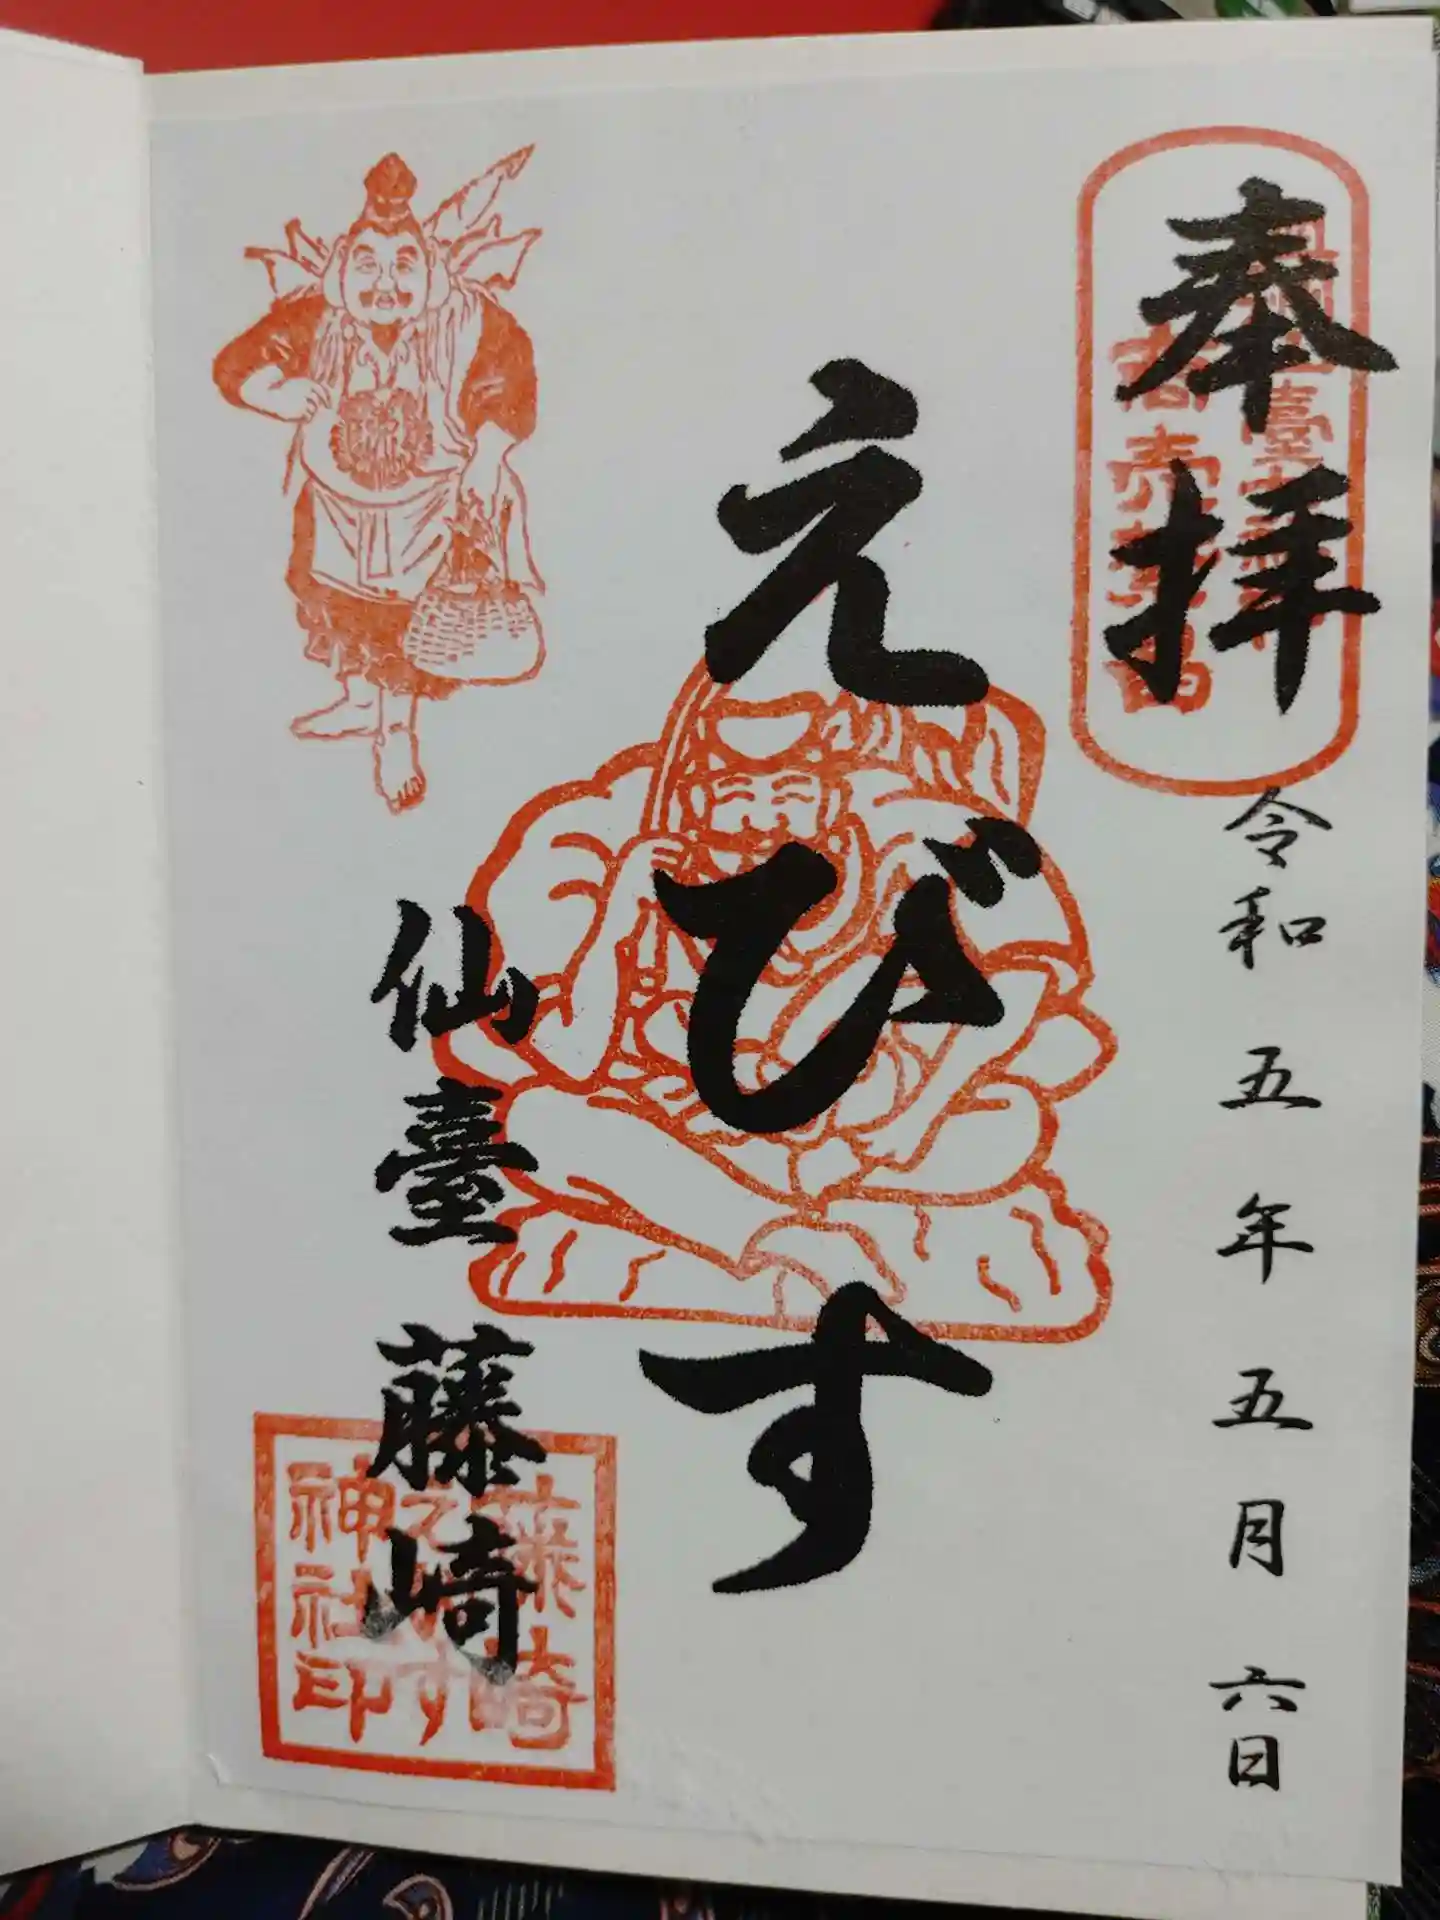 奉拝
令和五年五月六日
えびす
仙臺藤崎
藤崎
えびす
神社印